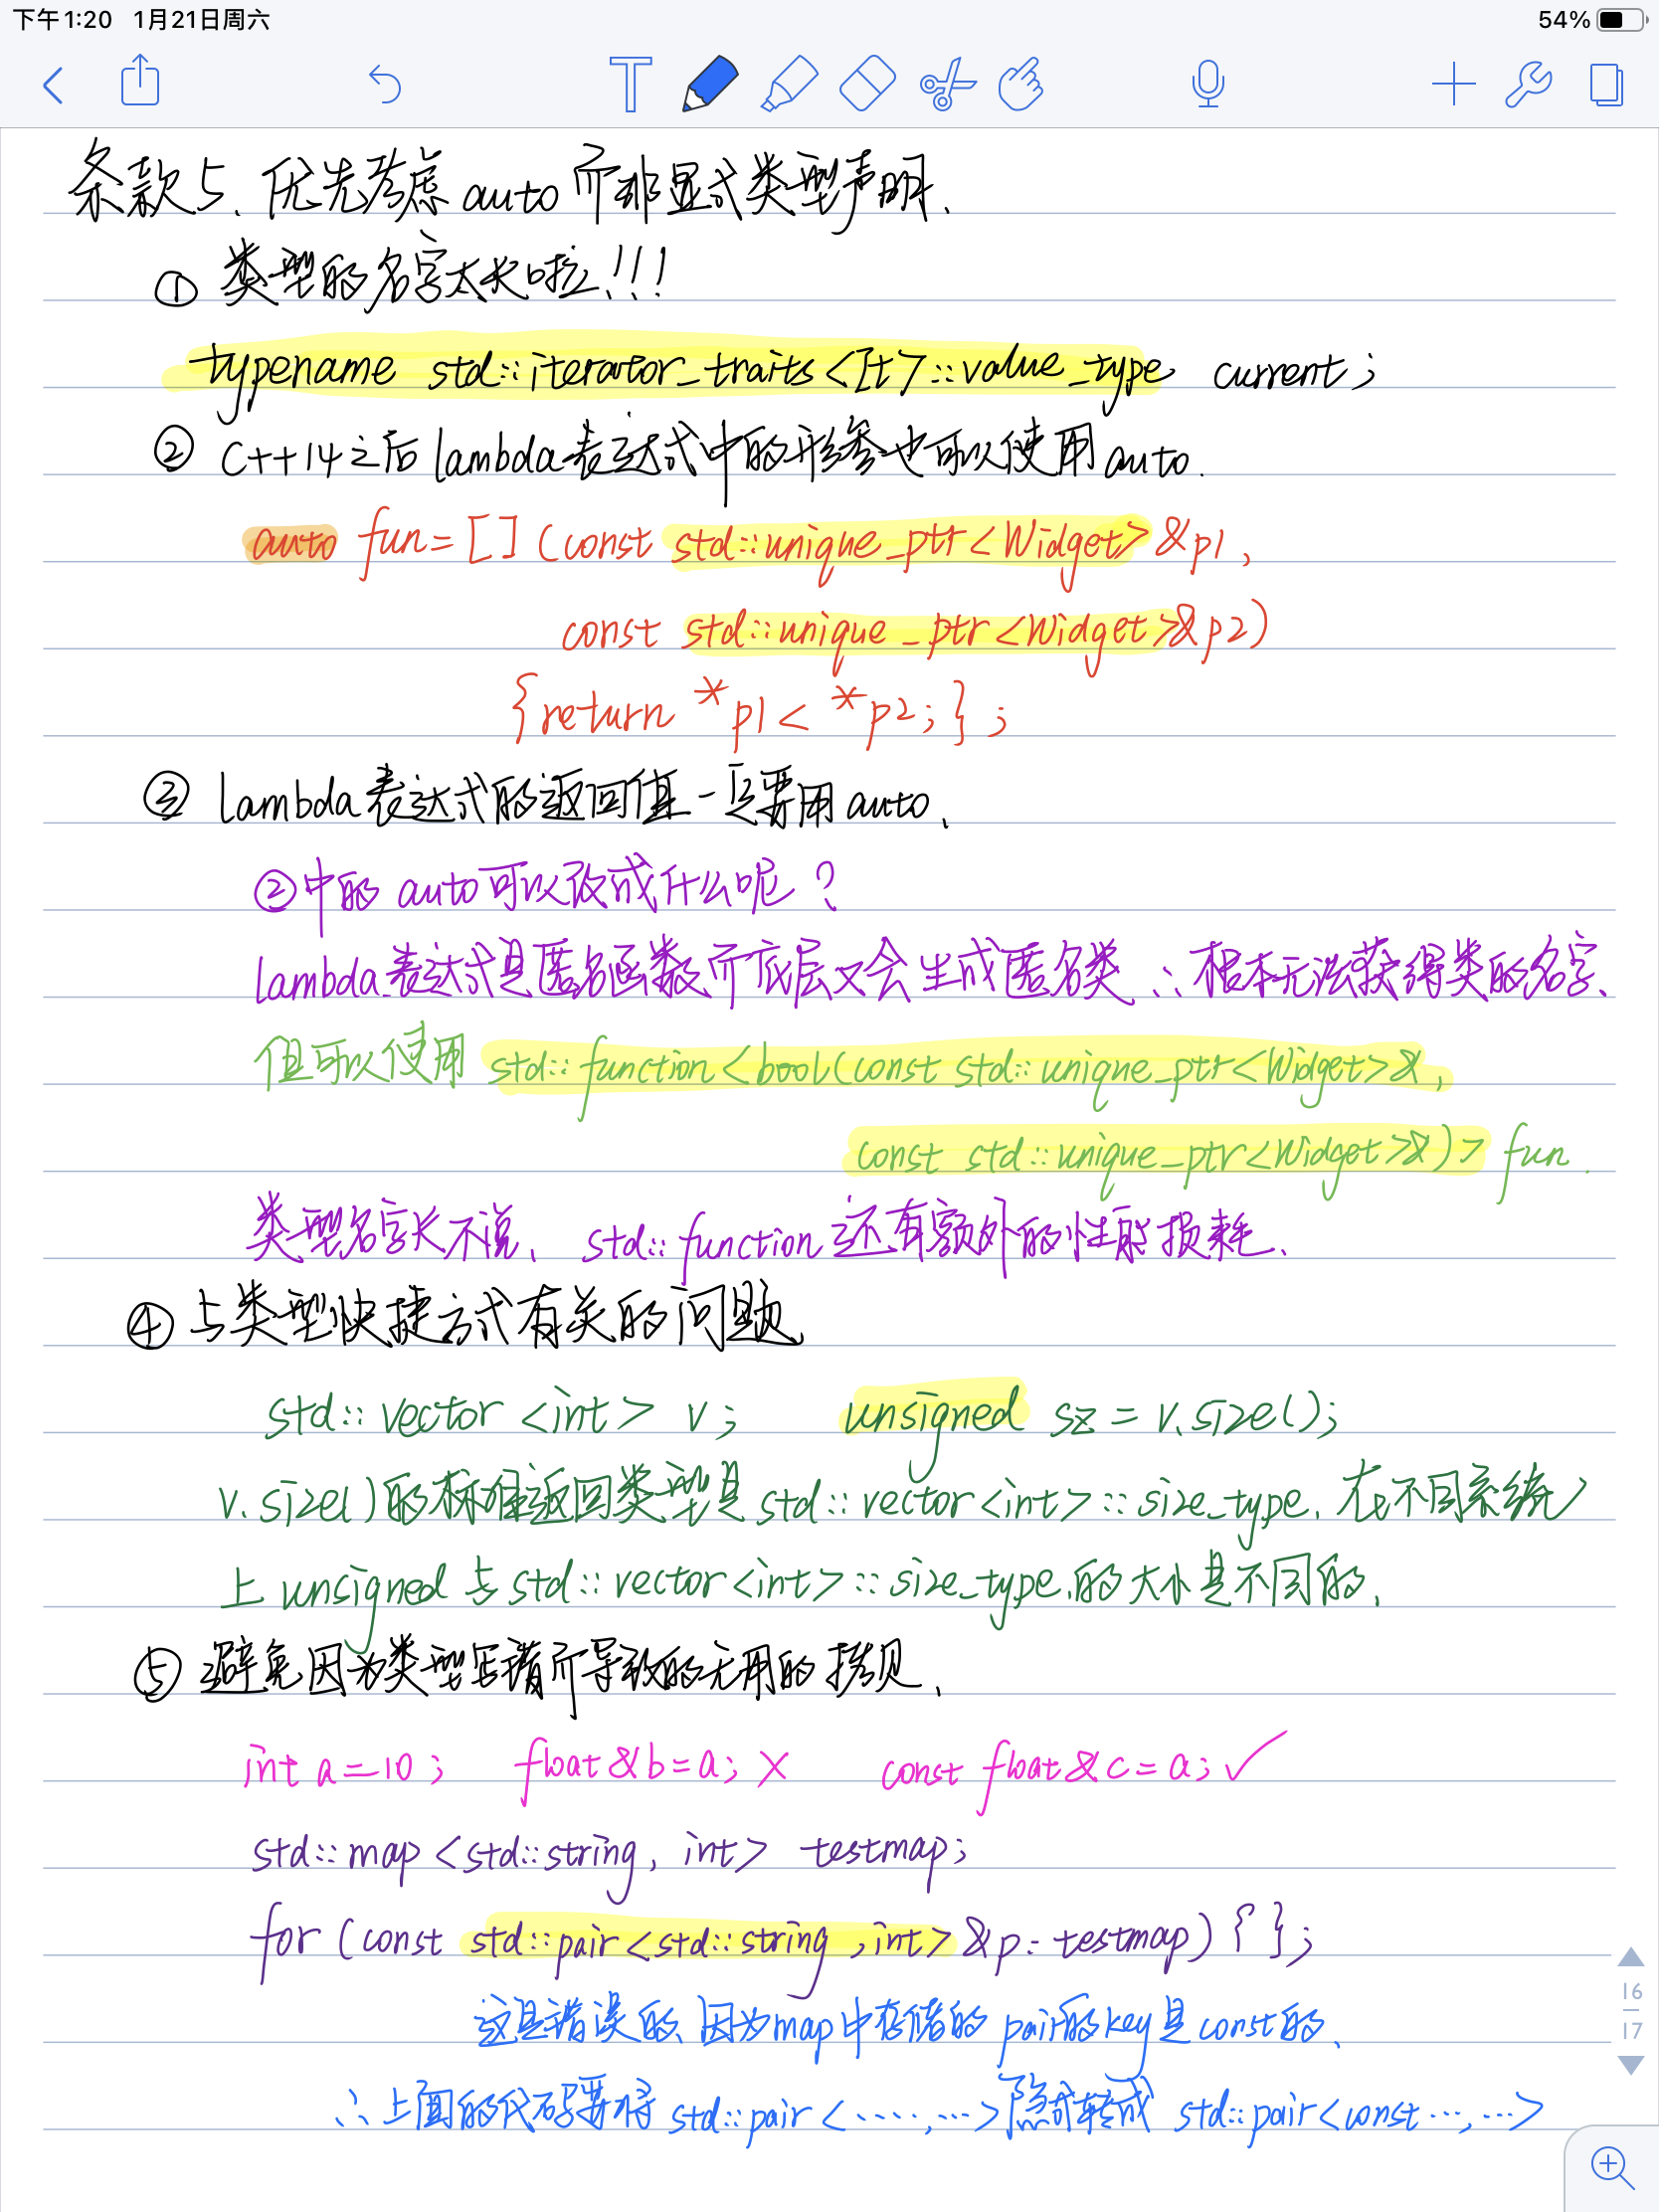 下午1:20 1月21日周六
54%
T
条款5、优先考虑 auto 而非显式类型声明、
① 类型的名字太长啦!!!
typename std::iterator_traits<It>::value_type current;
② C++14之后 lambda表达式中的形参也可以使用auto.
auto fun=[](const std::unique_ptr<Widget>&p1,
const std::unique_ptr<Widget>&p2)
{return *p1< *p2;};
③ lambda表达式的返回值一定要用 auto、
②中的 auto可以改成什么呢?
lambda表达式是匿名函数而底层又会生成匿名类 ∴根本无法获得类的名字、
但可以使用 std::function<bool(const std::unique_ptr<Widget>&,
const std::unique_ptr<Widget>&)> fun.
类型名字长不说、std::function 还有额外的性能损耗、
④ 与类型快捷方式有关的问题、
std::vector <int> v; unsigned sz = v.size();
v.size()的标准返回类型是 std::vector<int>::size_type、在不同系统
上 unsigned 与 std::vector<int>::size_type、的大小是不同的、
⑤ 避免因为类型写错所导致的无用的拷贝、
int a=10; float &b=a; × const float &c=a; ✓
std::map <std::string, int> testmap;
for (const std::pair<std::string ,int> &p: testmap) { };
这是错误的、因为map中存储的 pair的key是const的、
∴上面的代码要将 std::pair <····,···>隐式转成 std::pair<const···,···>
16
17